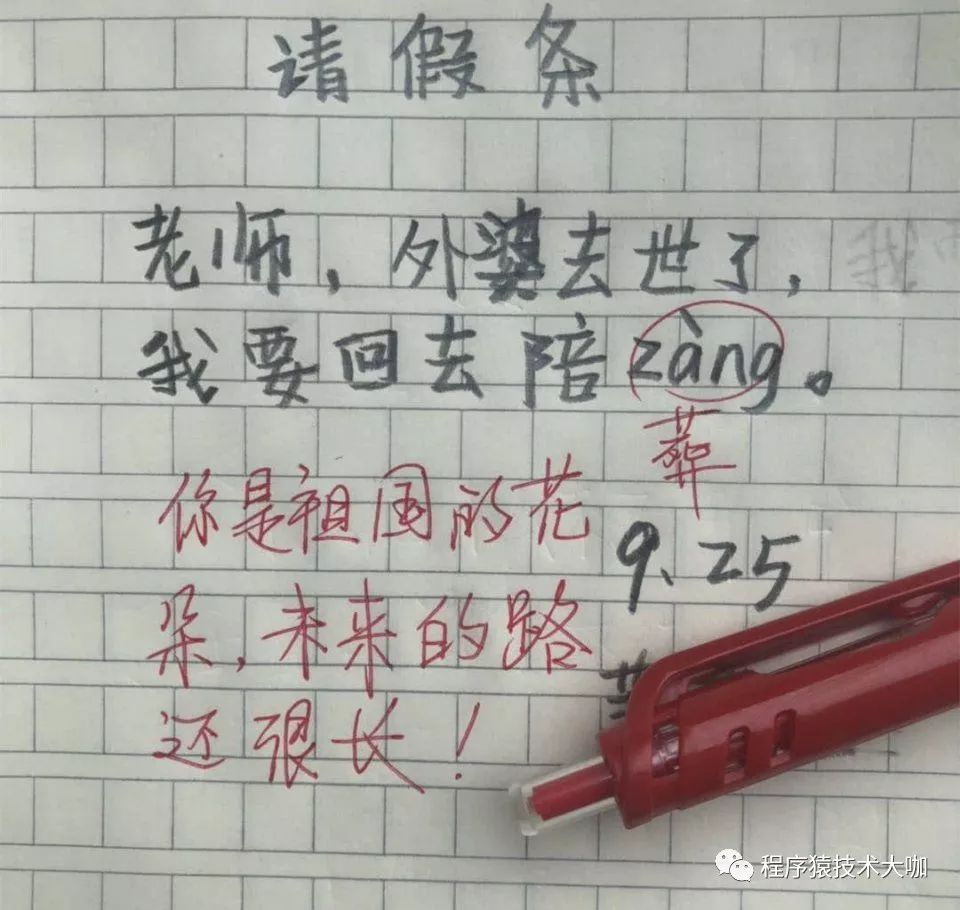 请假条
老师，外婆去世了，
我要回去陪zàng。
葬
你是祖国的花
朵，未来的路
还很长！
9.25
程序猿技术大咖